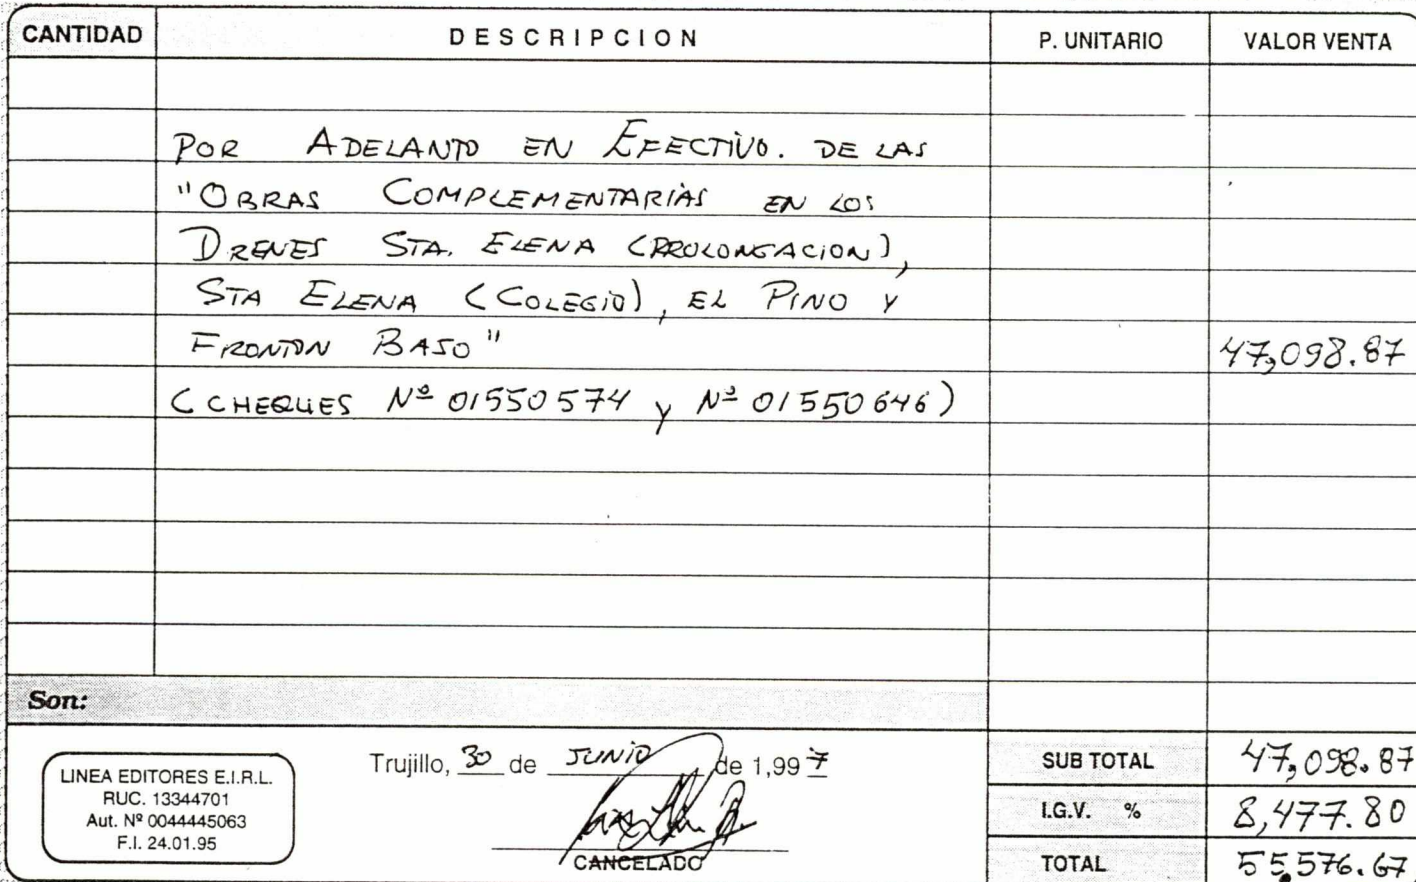 CANTIDAD DESCRIPCION P. UNITARIO VALOR VENTA
POR ADELANTO EN EFECTIVO. DE LAS
"OBRAS COMPLEMENTARIAS EN LOS
DRENES STA. ELENA (PROLONGACION),
STA ELENA (COLEGIO), EL PINO Y
FRONTON BAJO" 47,098.87
(CHEQUES Nº 01550574 y Nº 01550646)
Son:
LINEA EDITORES E.I.R.L.
RUC. 13344701
Aut. Nº 0044445063
F.I. 24.01.95
Trujillo, 30 de JUNIO de 1,997
CANCELADO
SUB TOTAL 47,098.87
I.G.V. % 8,477.80
TOTAL 55,576.67